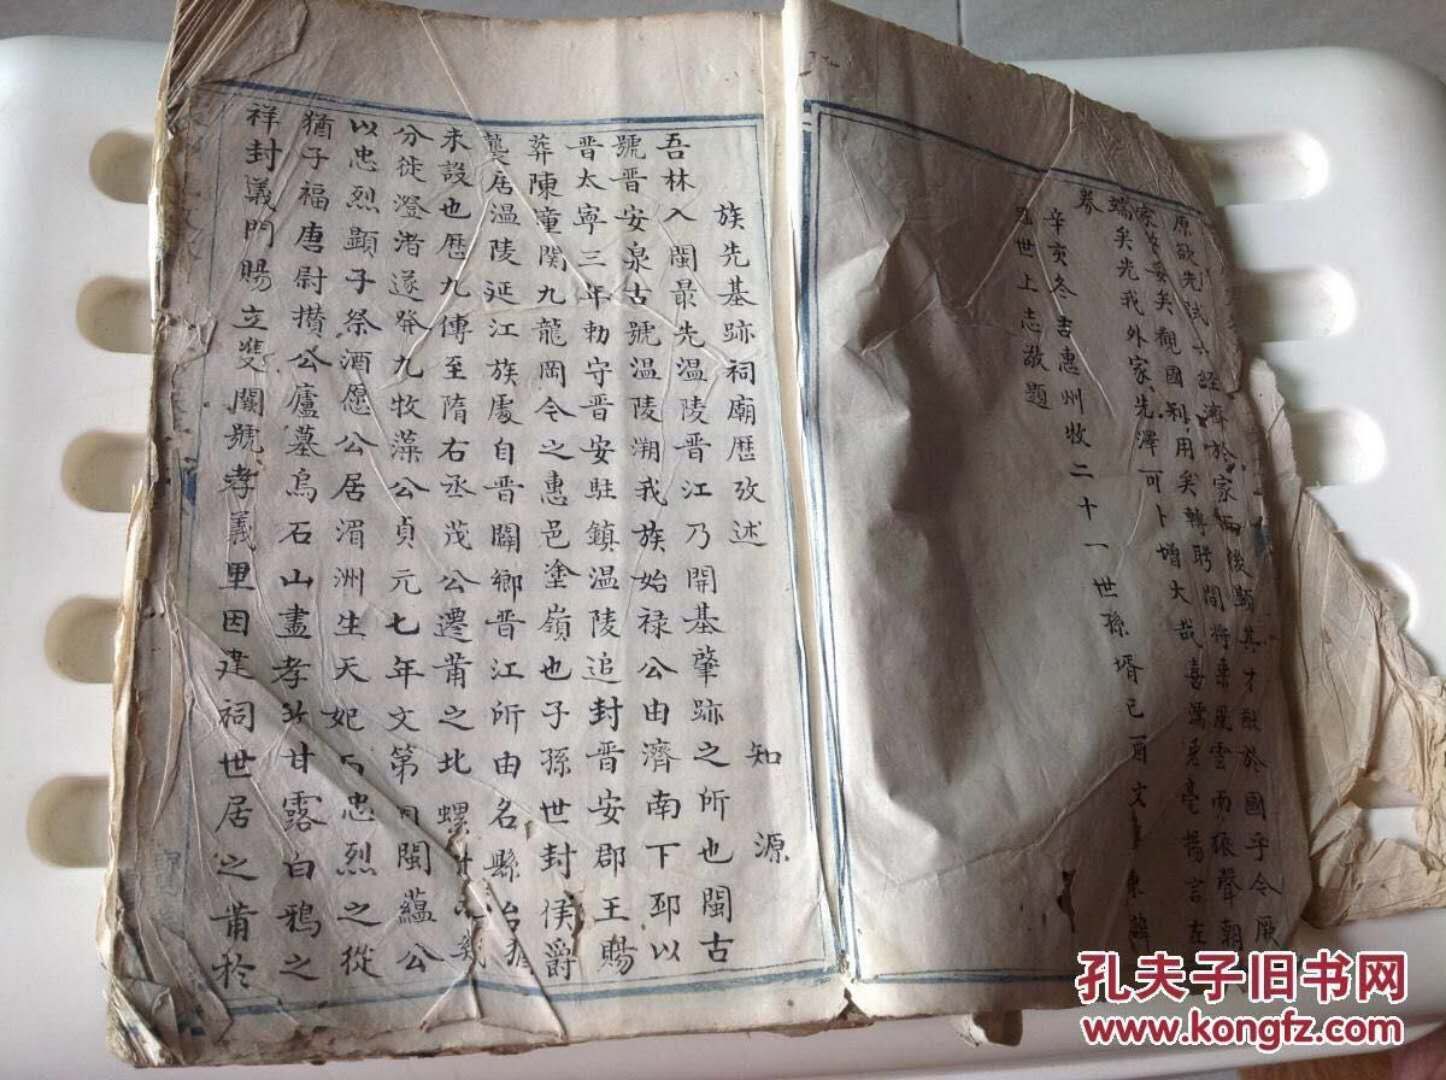 原欲先試六經濟於家而後顯其才猷於國乎今厥
家 要矣觀國利用矣轉盼間將乘風雲而振聲朝
端矣光我外家先澤可卜增大哉喜濡兔毫揚言左
卷
辛亥冬吉惠州牧二十一世孫壻己酉文
世上志敬題
族先基跡祠廟歷攷述 知源
吾林入閩最先溫陵晋江乃開基肇跡之所也閩古
號晋安泉古號溫陵溯我族始禄公由濟南下邳以
晋太寧三年勅守晋安駐鎮溫陵追封晋安郡王賜
葬陳童関九龍岡今之惠邑塗嶺也子孫世封侯爵
襲居溫陵延江族處自晋闢鄉晋江所由名縣治猶
未設也歷九傳至隋右丞茂公遷莆之北螺
分徙澄渚遂發九牧藻公貞元七年文第 閩蘊公
以忠烈顯子祭酒愿公居湄洲生天妃 忠烈之從
猶子福唐尉攢公廬墓烏石山盡孝 甘露白鴉之
祥封義門賜立雙闕號孝義里因建祠世居之莆於
孔夫子旧书网
www.kongfz.com